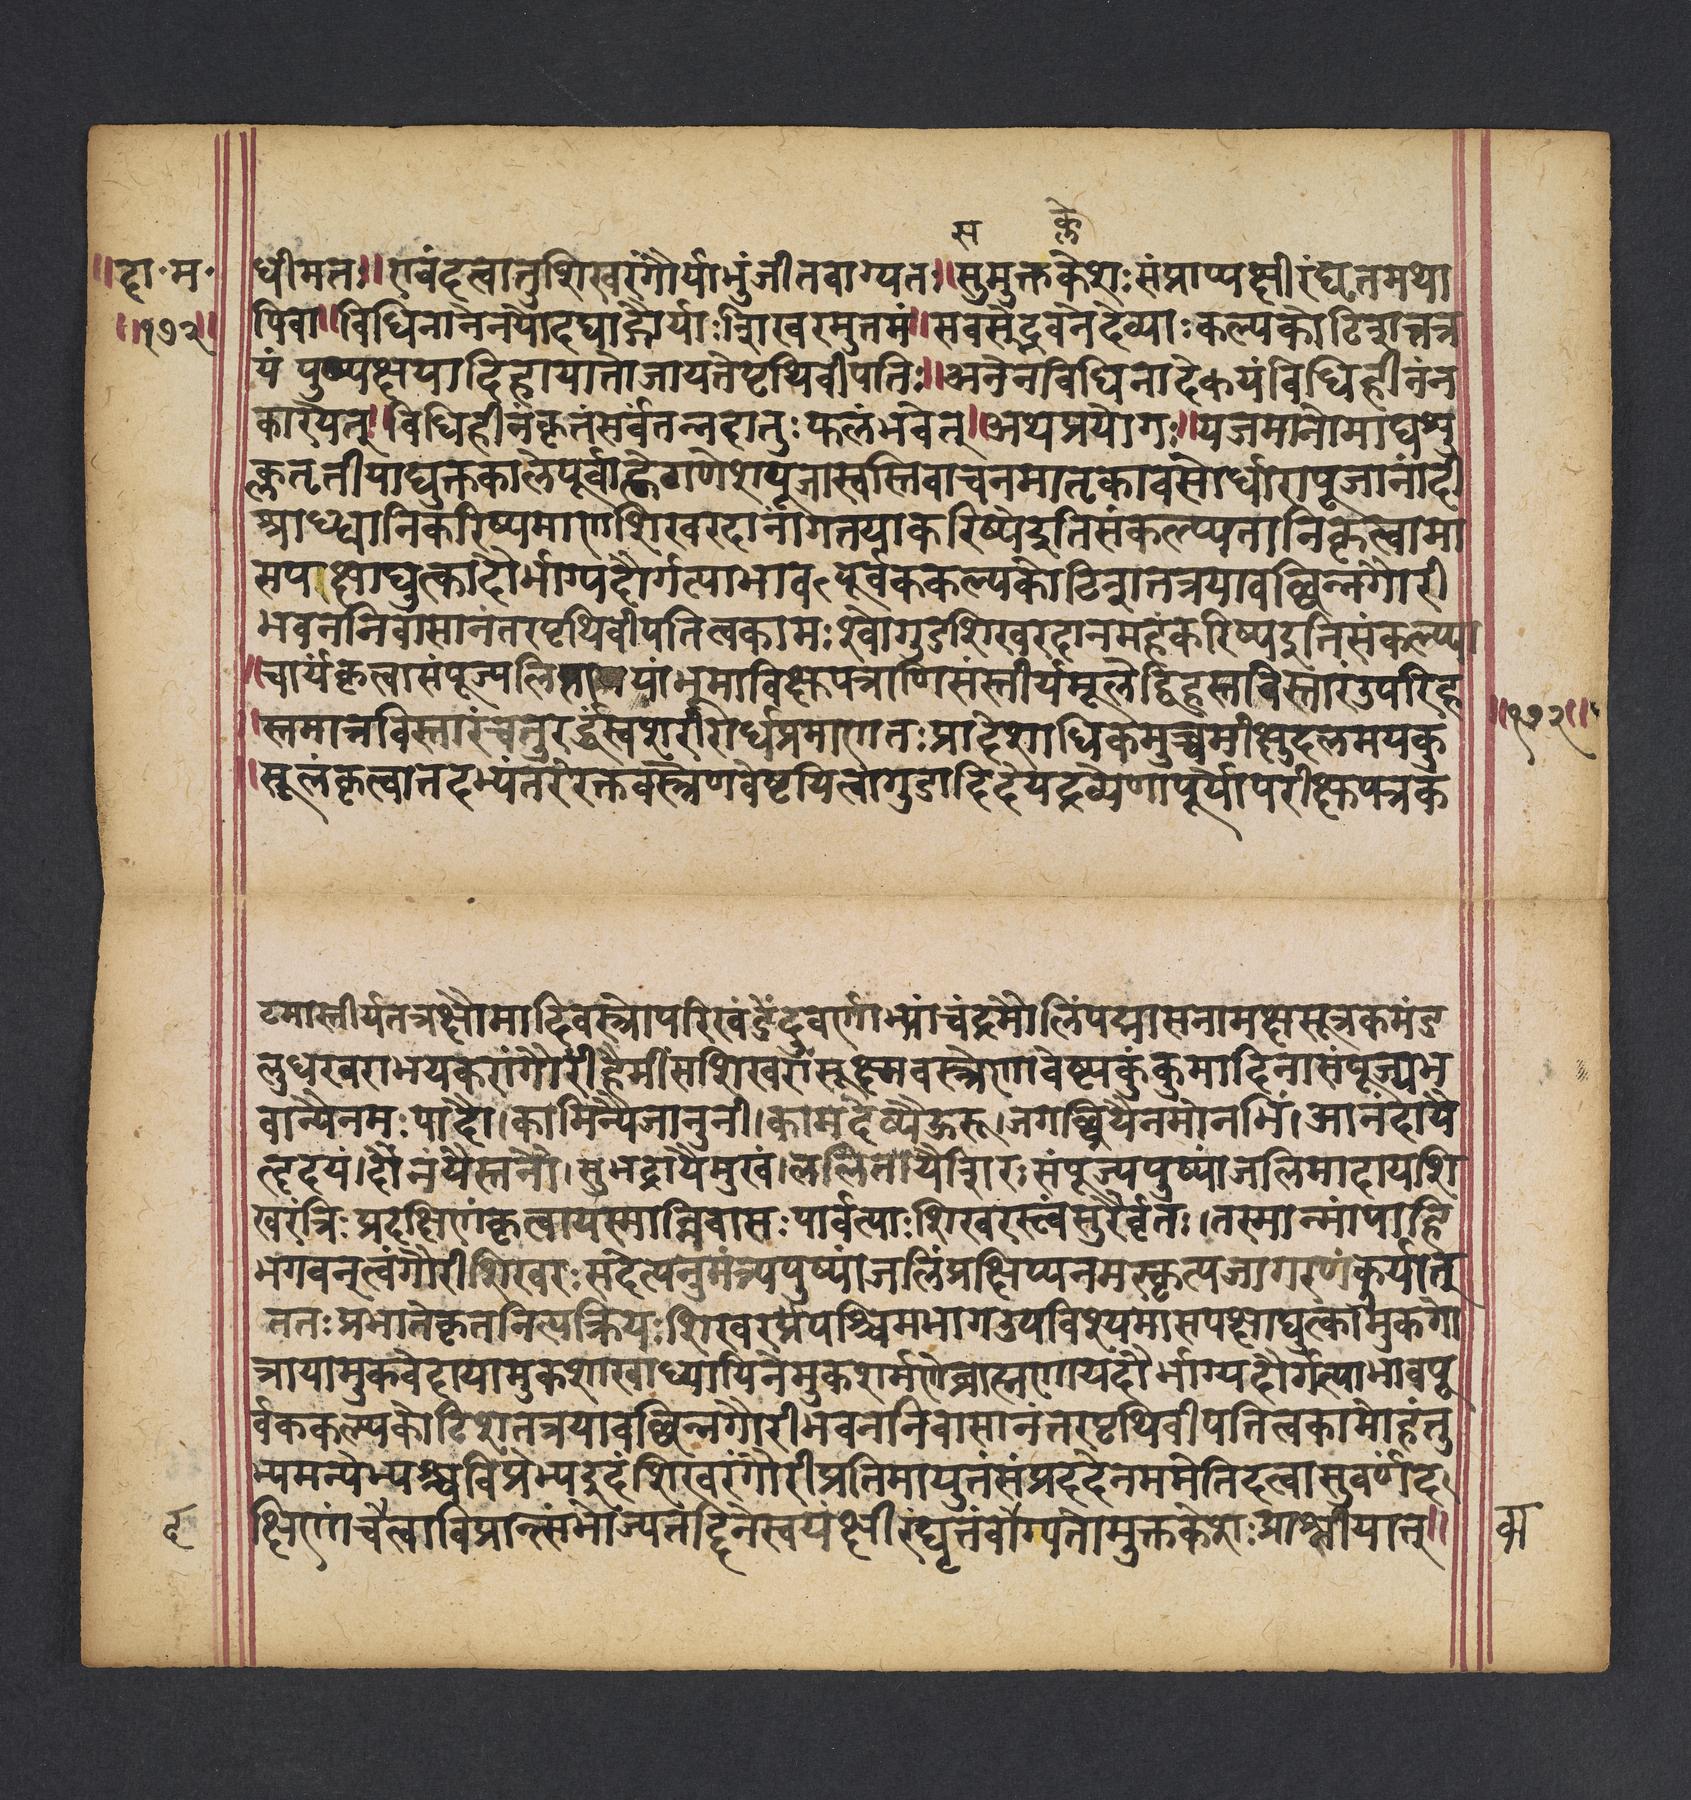 स क्ले
॥दा॰म॰ धीमतः॥एवंदत्वातुशिखरंगौर्याभुंजीतवाग्यतः॥सुमुक्तकेशःसंप्राप्यक्षीरंघृतमथा
॥१७२॥ पिवा॥विधिनानेनयोदद्याद्गौर्याःशिखरमुत्तमं॥सवसेद्भुवनेदेव्याःकल्पकोटिशतत्र
यं पुण्यक्षयादिहायातोजायतेपृथिवीपतिः॥अनेनविधिनादेकयंविधिहीनंन
कारयेत्॥विधिहीनंकृतंसर्वंतन्नदातुःफलंभवेत्॥अथप्रयोगः॥यजमानोमाघशु
क्लतृतीयाद्युक्तकालेपूर्वाह्णेगणेशपूजास्वस्तिवाचनमातृकावसोर्धारापूजानांदी
श्राध्धानिकरिष्यमाणशिखरदानांगतयाकरिष्येइतिसंकल्प्यतानिकृत्वामा
सपक्षाद्युत्कादौर्भाग्यदौर्गत्याभावपूर्वककल्पकोटिशतत्रयावछिन्नगौरी
भवननिवासानंतरपृथिवीपतित्वकामःश्वोगुडशिखरदानमहंकरिष्यइतिसंकल्प्या
॥चार्यंकृत्वासंपूज्यलि यांभूमाविक्षुपत्राणिसंस्तीर्यमूलेद्विहस्तविस्तारंउपरिह
॥स्तमात्रविस्तारंचतुरर्द्धंस्वशरीरार्धप्रमाणतःप्रादेशाधिकमुच्चमीक्षुदलमयकुं ॥१७२॥
॥सूलंकृत्वातदभ्यंतरंरक्तवस्त्रेणवेष्टयित्वागुडादिदेयद्रव्येणापूर्योपरीक्षुपत्रक
टमास्तीर्यतत्रक्षौमादिवस्त्रोपरिखंडेंदुवर्णाभ्यांचंद्रमौलिंपद्मासनामक्षसूत्रकमंड
लुधरवराभयकरांगौरींहैमींसशिखरांसूक्ष्मवस्त्रेणवेष्ट्यकुंकुमादिनासंपूज्यभ
वान्यैनमःपादौ।कामिन्यैजानुनी।कामदेव्यैऊरू।जगछ्रियैनमोनाभिं।आनंदायै
त्दृदयं।दौनंयैस्तनौ।सुभद्रायैमुखं।ललितायैशिरःसंपूज्यपुष्पांजलिमादायशि
खरंत्रिःप्रदक्षिणंकृत्वायस्मान्निवासःपार्वत्याःशिखरस्त्वंसुरैर्वृतः।तस्मान्मांपाहि
भगवन्त्वंगौरीशिखरःसदेत्यनुमंत्र्यपुष्पांजलिंप्रक्षिप्यनमस्कृत्यजागरणंकुर्यात्
ततःप्रभातेकृतनित्यक्रियःशिखरपश्चिमभागउपविश्यमासपक्षाद्युत्कामुकगो
त्रायामुकवेदायामुकशाखाध्यायिनेमुकशर्मणेब्राह्मणायदौर्भाग्यदौर्गत्याभावपू
र्वककल्पकोटिशतत्रयावछिन्नगौरीभवननिवासानंतरपृथिवीपतित्वकामोहंतु
भ्यमन्येभ्यश्चविप्रेभ्यइदंशिखरंगौरीप्रतिमायुतंसंप्रददेनममेतिदत्वासुवर्णंद
दृ क्षिणांचैत्वाविप्रान्संभोज्यतद्दिनेस्वयंक्षीरंघृतंवाग्यतोमुक्तकेशःप्राश्नीयात्॥ ब्रा